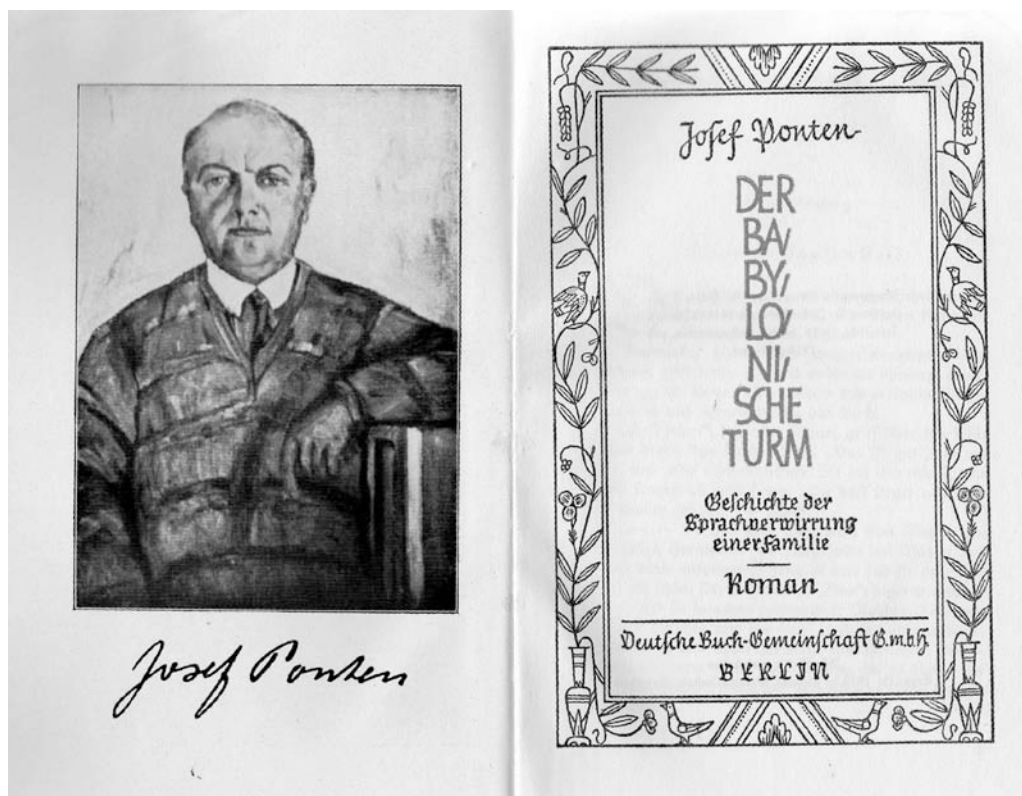 Josef Ponten
Josef Ponten
DER
BA/
BY/
LO/
NI/
SCHE
TURM
Geschichte der
Sprachverwirrung
einer Familie
Roman
Deutsche Buch-Gemeinschaft G.m.b.H.
BERLIN